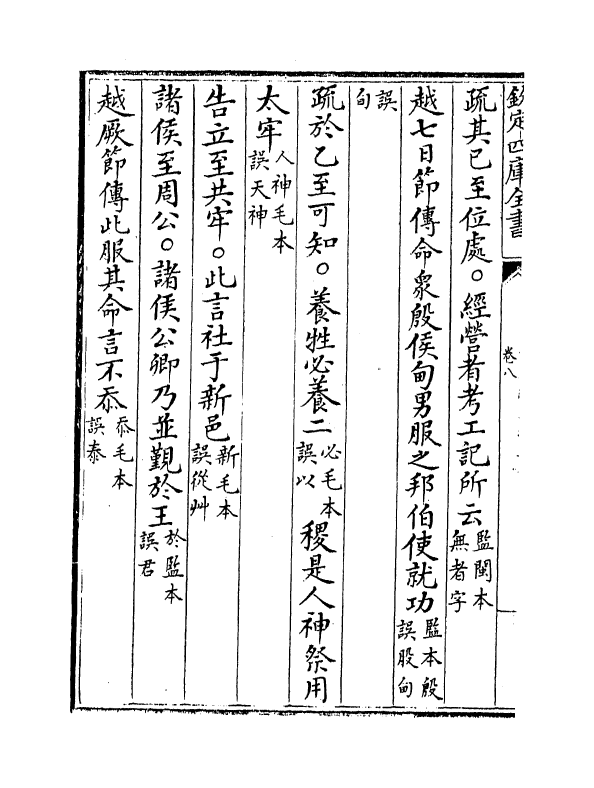 欽定四庫全書
卷八
疏其已至位處。經營者考工記所云監閩本無者字
越七日節傳命衆殷侯甸男服之邦伯使就功監本殷誤股甸
誤旬
疏於乙至可知。養牲必養二必毛本誤以稷是人神祭用
太牢人神毛本誤天神
告立至共牢。此言社于新邑新毛本誤從艸
諸侯至周公。諸侯公卿乃並覲於王於監本誤君
越厥節傳此服其命言不忝忝毛本誤泰